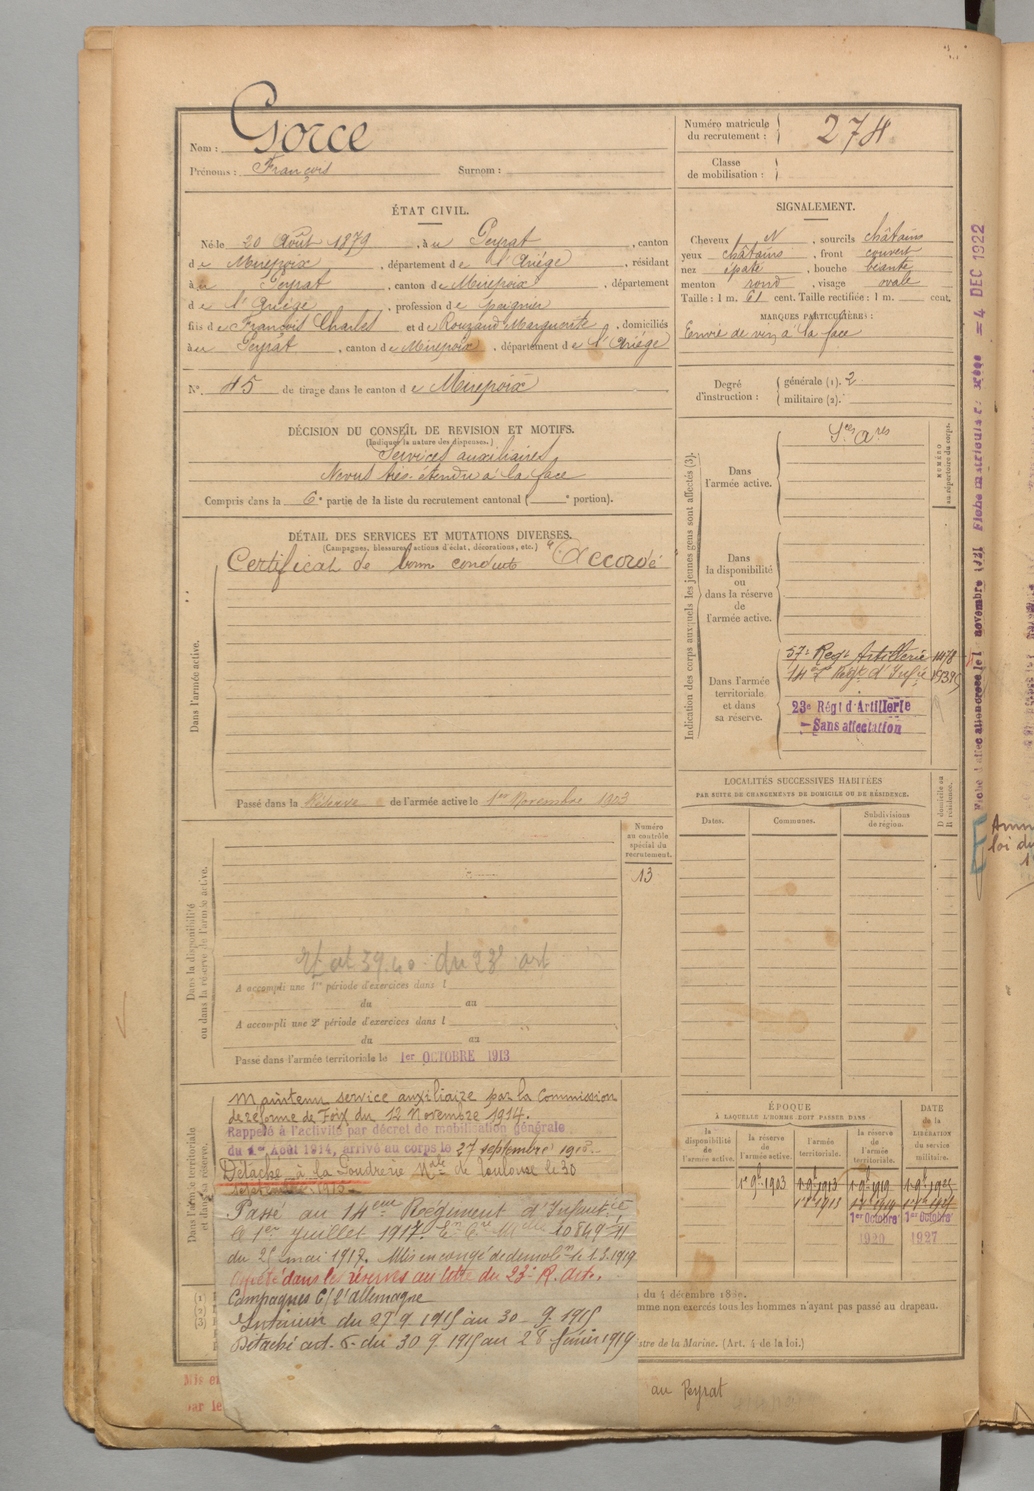 Nom : Gorce
Prénoms : François Surnom :
Numéro matricule du recrutement : 274
Classe de mobilisation :
ÉTAT CIVIL.
Né le 20 Août 1879, à u Peyrat, canton
de Mirepoix, département de l'Ariége, résidant
à u Peyrat, canton de Mirepoix, département
de l'Ariége, profession de peignier
fils de François Charles et de Rouzaud Marguerite, domiciliés
à u Peyrat, canton de Mirepoix, département de l'Ariége
N° 45 de tirage dans le canton de Mirepoix
SIGNALEMENT.
Cheveux N, sourcils châtains
yeux châtains, front couvert
nez épaté, bouche béante
menton rond, visage ovale
Taille : 1 m. 61 cent. Taille rectifiée : 1 m. cent.
MARQUES PARTICULIÈRES :
Envie de vin à la face
Degré d'instruction : générale (1). 2
militaire (2).
DÉCISION DU CONSEIL DE REVISION ET MOTIFS.
(Indiquer la nature des dispenses.)
Services auxiliaires
Nœvus très étendu à la face
Compris dans la 6e partie de la liste du recrutement cantonal ( e portion).
DÉTAIL DES SERVICES ET MUTATIONS DIVERSES.
(Campagnes, blessures, actions d'éclat, décorations, etc.)
Certificat de bonne conduite "Accordé"
Dans l'armée active.
Passé dans la Réserve de l'armée active le 1er Novembre 1903
Indication des corps auxquels les jeunes gens sont affectés (3).
NUMÉRO au répertoire du corps.
Dans l'armée active.
Sces Ares
Dans la disponibilité ou dans la réserve de l'armée active.
Dans l'armée territoriale et dans sa réserve.
57e Regt Artillerie
14e Regt d'Infie
23e Régt d'Artillerie
Sans affectation
LOCALITÉS SUCCESSIVES HABITÉES
PAR SUITE DE CHANGEMENTS DE DOMICILE OU DE RÉSIDENCE.
Dates. Communes. Subdivisions de région. D domicile ou R résidence.
Dans la disponibilité ou dans la réserve de l'armée active.
Numéro au contrôle spécial du recrutement.
13
du 23e art
A accompli une 1re période d'exercices dans l
du au
A accompli une 2e période d'exercices dans l
du au
Passé dans l'armée territoriale le 1er OCTOBRE 1913
Dans l'armée territoriale et dans sa réserve.
Maintenu service auxiliaire par la Commission
de réforme de Foix du 12 Novembre 1914.
Rappelé à l'activité par décret de mobilisation générale
du 1er Août 1914, arrivé au corps le 27 septembre 1915.
Détaché à la Poudrerie Nale de Toulouse le 30
septembre 1915
Passé au 14eme Régiment d'Infantie
le 1er juillet 1917.
du 25 mai 1917. Mis en congé de démobon le 1.3.1919
Affecté dans les réserves au titre du 23e R. Art.
Campagnes C/ l'allemagne
Intérieur du 27.9.1915 au 30.9.1915
Détaché art. 6. du 30.9.1915 au 28 février 1919
ÉPOQUE
À LAQUELLE L'HOMME DOIT PASSER DANS
la disponibilité de l'armée active. la réserve de l'armée active. l'armée territoriale. la réserve de l'armée territoriale.
DATE de la LIBÉRATION du service militaire.
1er 9bre 1903
1er Octobre 1920
1er Octobre 1927
du 4 décembre 18
mme non exercés tous les hommes n'ayant pas passé au drapeau.
stre de la Marine. (Art. 4 de la loi.)
au Peyrat
= 4 DEC 1922
Mis en
par le
loi du